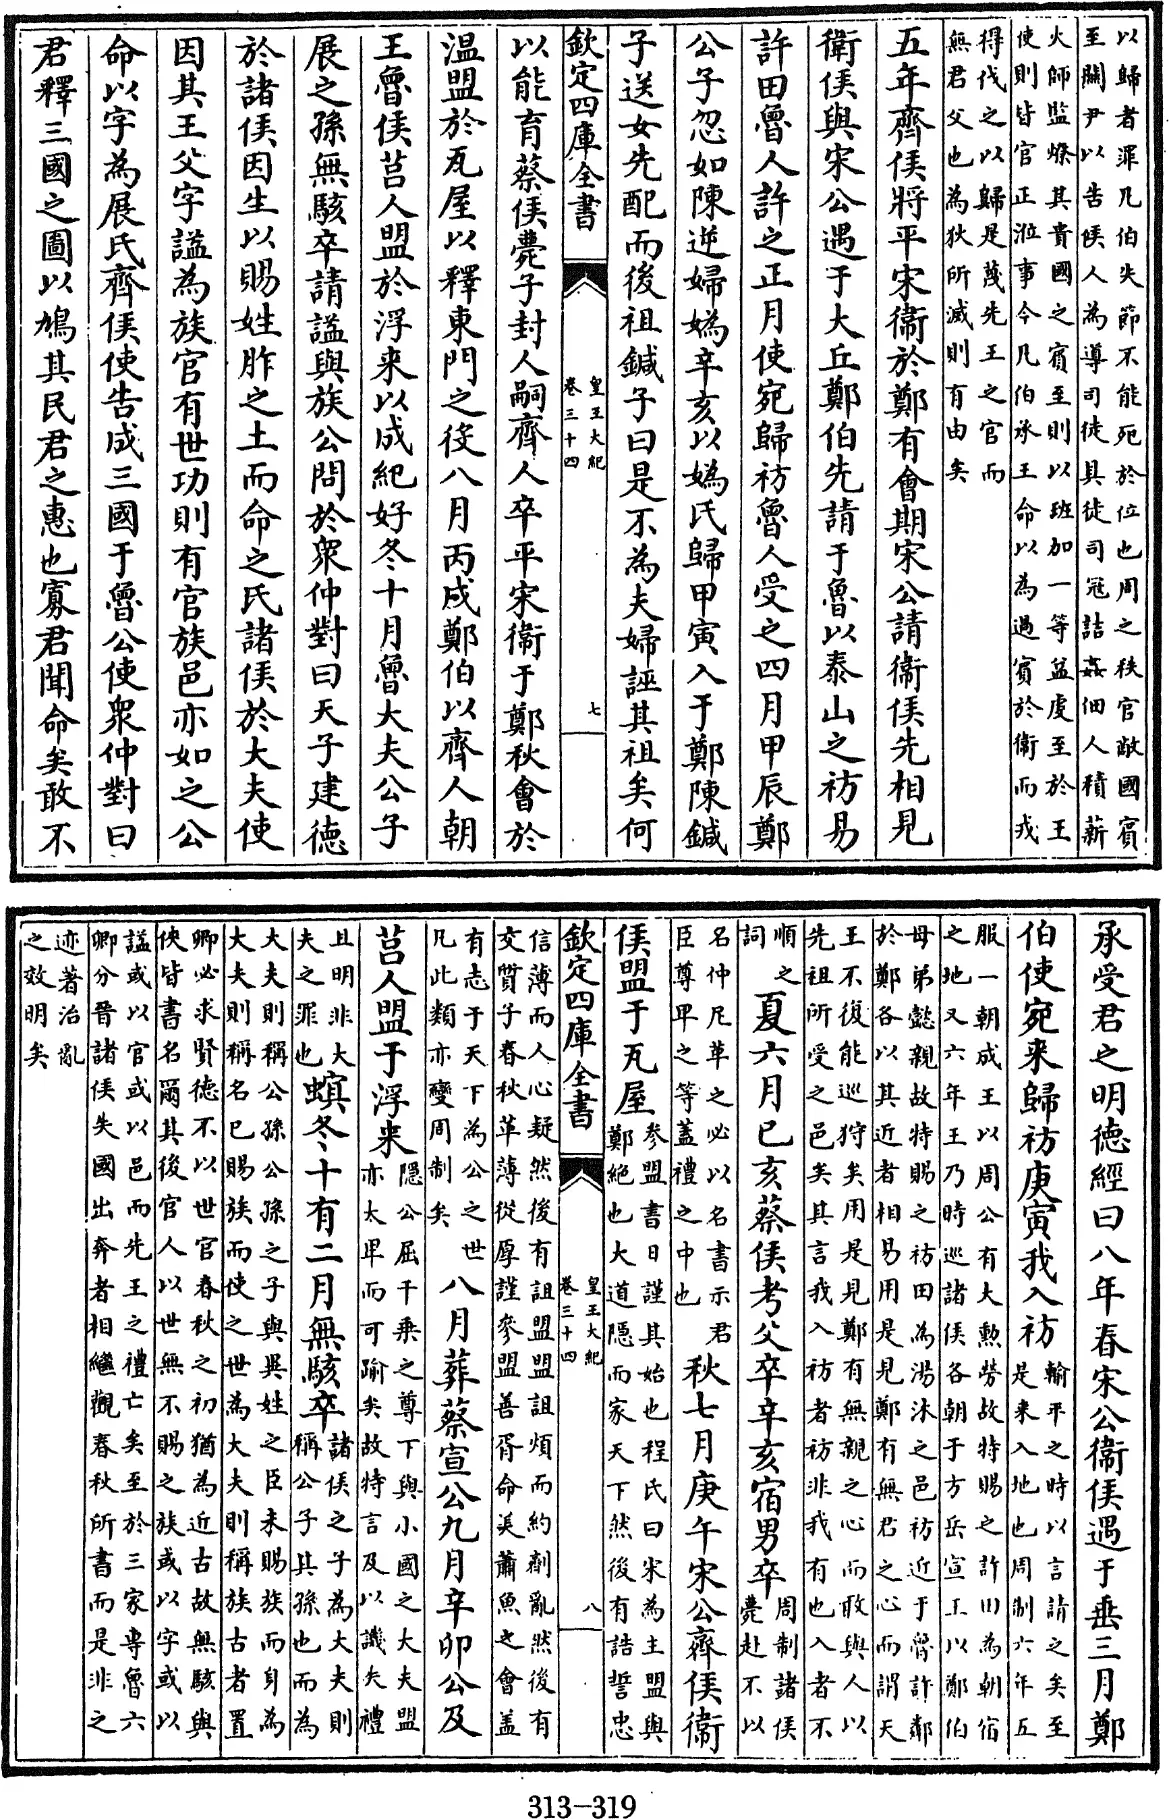 以歸者罪凡伯失節不能死於位也周之秩官敵國賓
至關尹以告候人為導司徒具徒司寇詰姦佃人積薪
火師監燎其貴國之賓至則以班加一等益虔至於王
使則皆官正涖事今凡伯承王命以為過賓於衛而戎
得伐之以歸是蔑先王之官而
無君父也為狄所滅則有由矣
五年齊侯將平宋衛於鄭有會期宋公請衛侯先相見
衛侯與宋公遇于大丘鄭伯先請于魯以泰山之祊易
許田魯人許之正月使宛歸祊魯人受之四月甲辰鄭
公子忽如陳逆婦媯辛亥以媯氏歸甲寅入于鄭陳鍼
子送女先配而後祖鍼子曰是不為夫婦誣其祖矣何
欽定四庫全書
皇王大紀
卷三十四
七
以能育蔡侯薨子封人嗣齊人卒平宋衛于鄭秋會於
溫盟於瓦屋以釋東門之役八月丙戌鄭伯以齊人朝
王魯侯莒人盟於浮来以成紀好冬十月魯大夫公子
展之孫無駭卒請謚與族公問於衆仲對曰天子建德
於諸侯因生以賜姓胙之土而命之氏諸侯於大夫使
因其王父字謚為族官有世功則有官族邑亦如之公
命以字為展氏齊侯使告成三國于魯公使衆仲對曰
君釋三國之圖以鳩其民君之惠也寡君聞命矣敢不
承受君之明德經曰八年春宋公衛侯遇于垂三月鄭
伯使宛来歸祊庚寅我入祊
輸平之時以言請之矣至
是来入地也周制六年五
服一朝成王以周公有大勲勞故特賜之許田為朝宿
之地又六年王乃時巡諸侯各朝于方岳宣王以鄭伯
母弟懿親故特賜之祊田為湯沐之邑祊近于魯許鄰
於鄭各以其近者相易用是見鄭有無君之心而謂天
王不復能巡狩矣用是見鄭有無親之心而敢與人以
先祖所受之邑矣其言我入祊者祊非我有也入者不
順之
詞
夏六月己亥蔡侯考父卒辛亥宿男卒
周制諸侯
薨赴不以
名仲尼革之必以名書示君
臣尊卑之等蓋禮之中也
秋七月庚午宋公齊侯衛
侯盟于瓦屋
參盟書日謹其始也程氏曰宋為主盟與
鄭絶也大道隱而家天下然後有誥誓忠
欽定四庫全書
皇王大紀
卷三十四
八
信薄而人心疑然後有詛盟盟詛煩而約劑亂然後有
交質子春秋革薄從厚謹參盟善胥命美蕭魚之會盖
有志于天下為公之世
凡此類亦變周制矣
八月葬蔡宣公九月辛卯公及
莒人盟于浮来
隱公屈千乘之尊下與小國之大夫盟
亦太卑而可踰矣故特言及以譏失禮
且明非大
夫之罪也
螟冬十有二月無駭卒
諸侯之子為大夫則
稱公子其孫也而為
大夫則稱公孫公孫之子與異姓之臣未賜族而身為
大夫則稱名已賜族而使之世為大夫則稱族古者置
卿必求賢徳不以世官春秋之初猶為近古故無駭與
俠皆書名爾其後官人以世無不賜之族或以字或以
謚或以官或以邑而先王之禮亡矣至於三家専魯六
卿分晉諸侯失國出奔者相繼觀春秋所書而是非之
迹著治亂
之效明矣
313-319